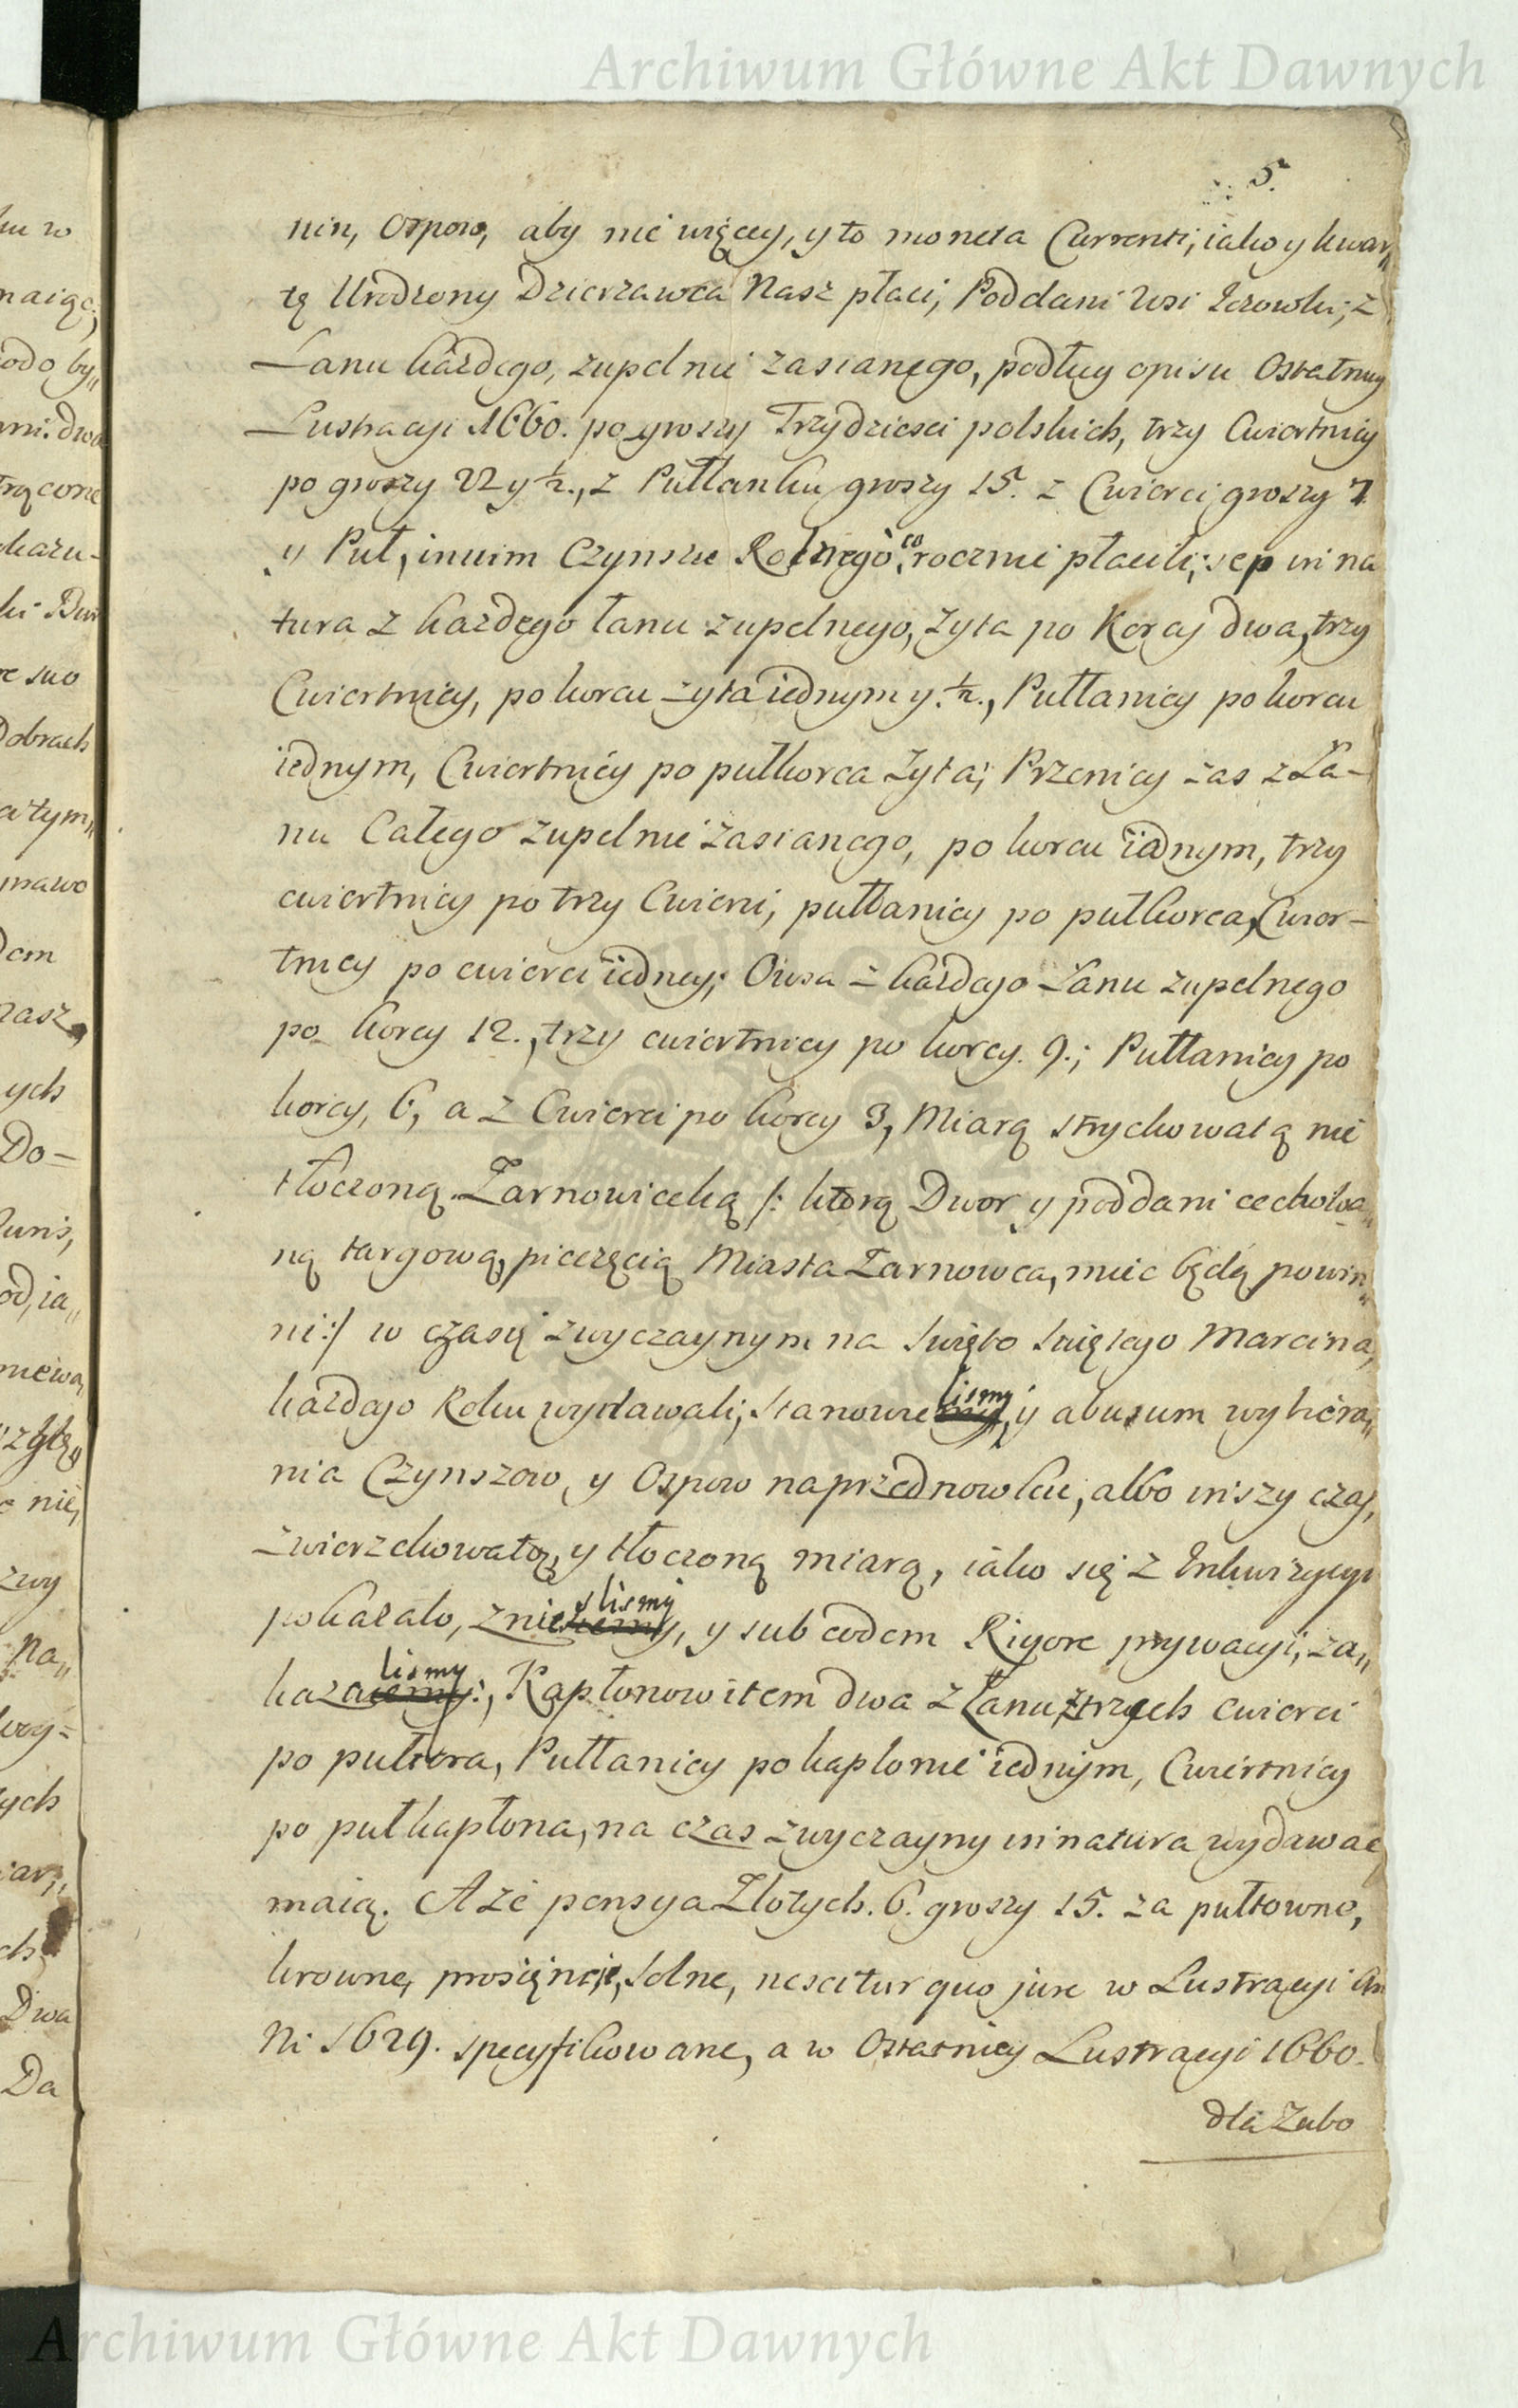 Archiwum Główne Akt Dawnych
5.
nin, Ospow, aby nic więcey, y to moneta Currenti, iako y kwar„
tę Urodzony Dzierzawca Nasz płaci, Poddani Wsi Jezowki, z
Łanu każdego, zupełnie zasianego, podług opisu Ostatniey
Lustracyi 1660. po groszy Trzydziesci polskich, trzy Cwiertnicy
po groszy 22 y ½., z Pułłanku groszy 15. z Cwierci groszy 7
y Puł, inuim Czynszu Rolnego co rocznie płacili; sep in na
tura z kazdego łanu zupełnego, żyta po Korcy dwa, trzy
Cwiertnicy, po korcu żyta iednym y ½., Pułłanicy po korcu
iednym, Cwiertnicy po pułkorca żyta; Przenicy zas z Ła-
nu Całego zupełnie zasianego, po korcu iednym, trzy
cwiertnicy po trzy Cwierci, pułłanicy po pułkorca, Cwier-
tnicy po cwierci iedney; Owsa z każdego Łanu zupełnego
po korcy 12., trzy cwiertnicy po korcy. 9.; Pułłanicy po
korcy, 6, a z Cwierci po korcy 3, Miarą strychowatą nie
tłoczoną Żarnowicką /: ktorą Dwor y poddani cechowa„
ną targową, pieczęcią Miasta Żarnowca, miec będą powin„
ni :/ w czasię zwyczaynym na Swięto Swiętego Marcina,
każdego Roku wydawali; Stanowie lismy, y abusum wybiera„
nia Czynszow, y Ospow na przednowku, albo inszy czas,
zwierzchowatą, y tłoczoną miarą, iako się z Inkwizycyi
pokazało, znieslismy, y sub eodem Rigore prywacyi, za„
kazalismy:, Kapłonow item dwa z Łanu, z trzech cwierci
po pułtora, Pułłanicy po kapłonie iednym, Cwiertnicy
po puł kapłona, na czas zwyczayny in natura wydawac
maią. A że pensya Złotych. 6. groszy 15. za pułtowne,
krowne, prosięncie, Solne, nescitur quo jure w Lustracyi An
Ni 1629. specyfikowane, a w Ostatniey Lustracyi 1660.
dla Zubo
Archiwum Główne Akt Dawnych